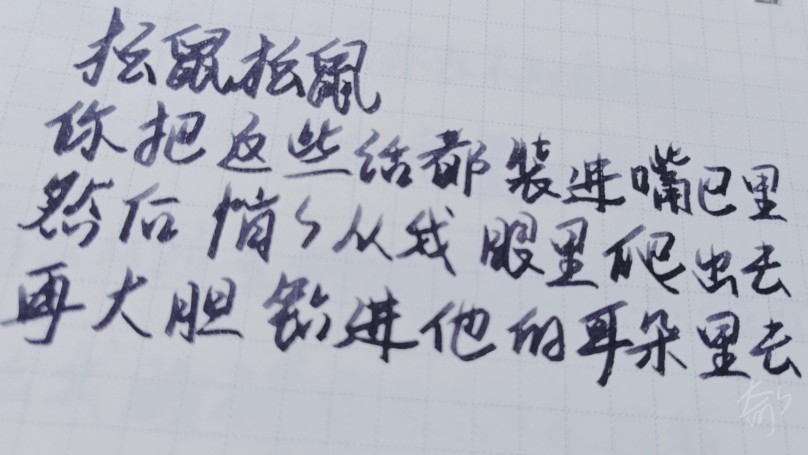 松鼠松鼠
你把这些话都装进嘴巴里
然后悄々从我眼里爬出去
再大胆钻进他的耳朵里去